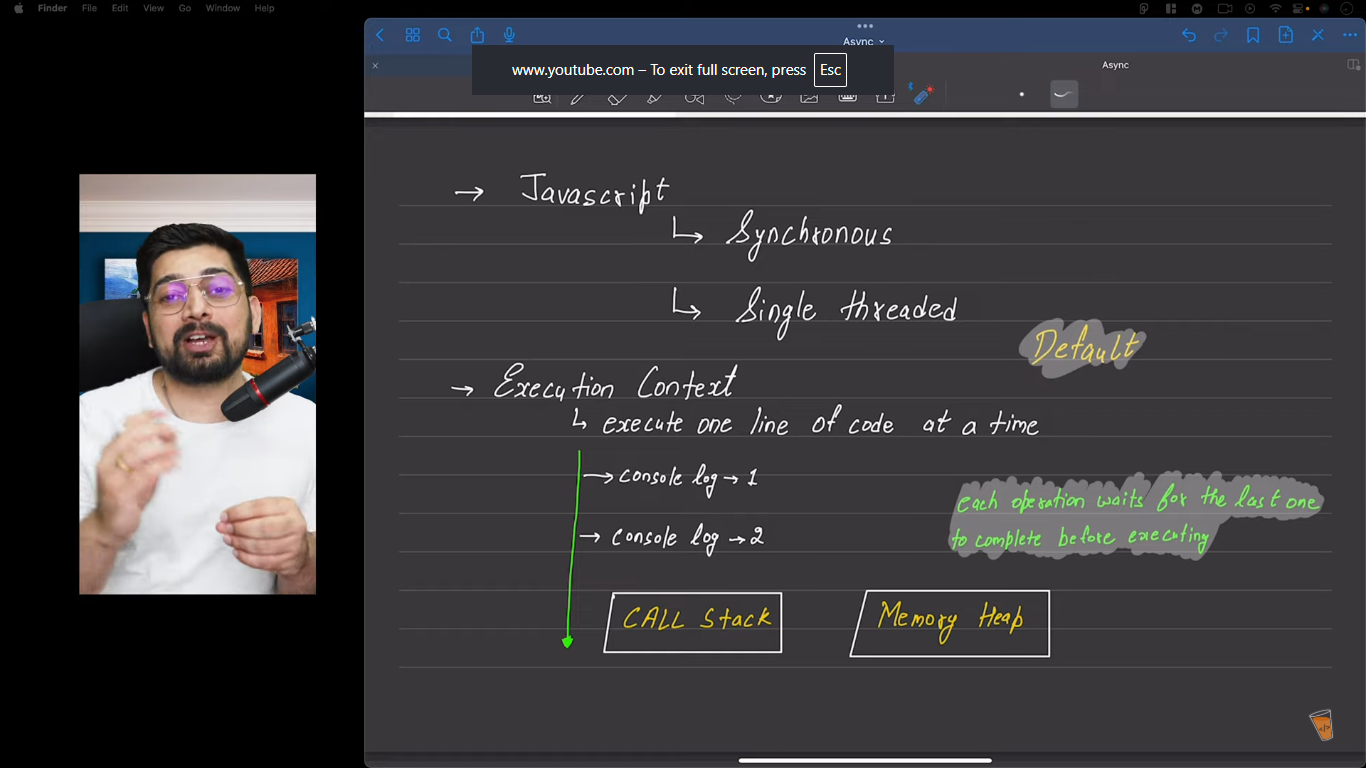 Finder File Edit View Go Window Help
Async
www.youtube.com – To exit full screen, press Esc
Async
→ Javascript
↳ Synchronous
↳ Single threaded
Default
→ Execution Context
↳ execute one line of code at a time
→ console log → 1
each operation waits for the last one
→ console log → 2
to complete before executing
CALL Stack
Memory Heap